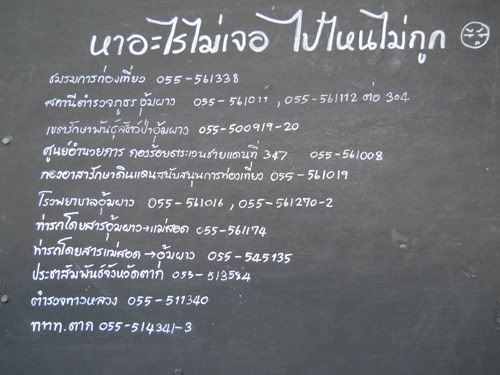 หาอะไรไม่เจอ ไปไหนไม่ถูก
ชมรมการท่องเที่ยว 055-561338
สถานีตำรวจภูธร อุ้มผาง 055-561011 , 055-561112 ต่อ 304
เขตรักษาพันธุ์สัตว์ป่าอุ้มผาง 055-500919-20
ศูนย์อำนวยการ กองร้อยตระเวนชายแดนที่ 347 055-561008
กองอาสารักษาดินแดนสนับสนุนการท่องเที่ยว 055-561019
โรงพยาบาลอุ้มผาง 055-561016 , 055-561270-2
ท่ารถโดยสารอุ้มผาง→แม่สอด 055-561174
ท่ารถโดยสารแม่สอด → อุ้มผาง 055-545135
ประชาสัมพันธ์จังหวัดตาก 055-513584
ตำรวจทางหลวง 055-511340
ททท.ตาก 055-514341-3